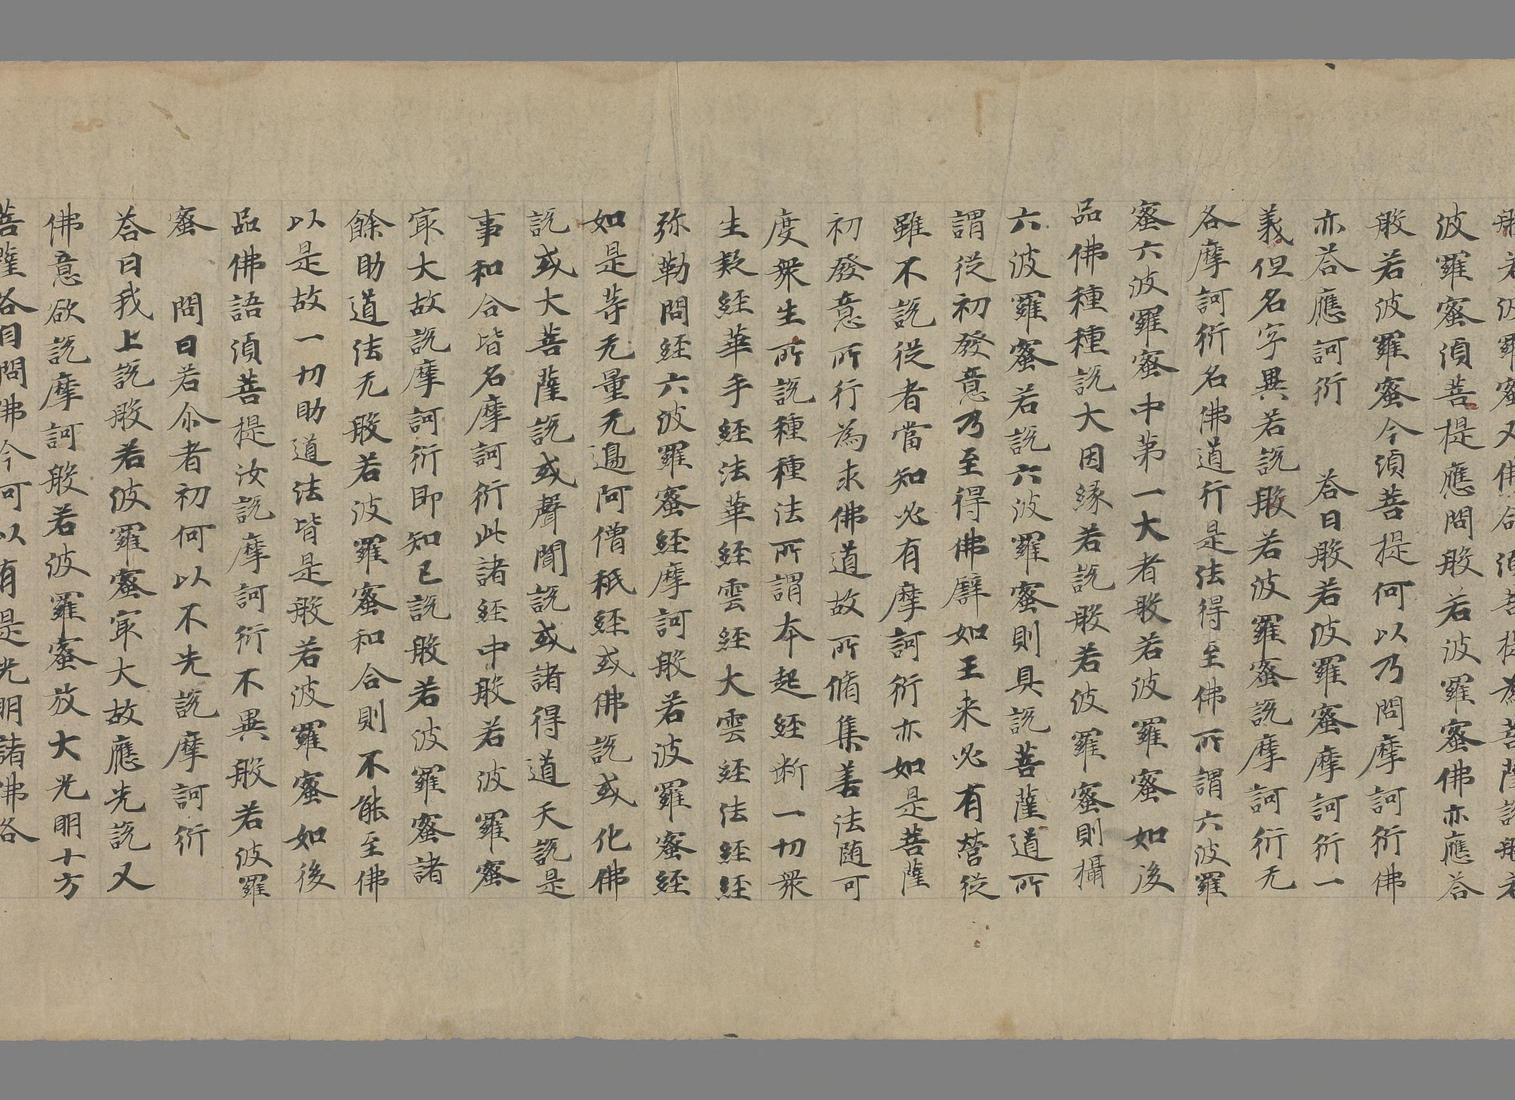 般若波羅蜜又佛命須菩提為菩薩說般若
波羅蜜須菩提應問般若波羅蜜佛亦應荅
般若波羅蜜今須菩提何以乃問摩訶衍佛
亦荅應訶衍　荅曰般若波羅蜜摩訶衍一
義但名字異若說般若波羅蜜說摩訶衍无
各摩訶衍名佛道行是法得至佛所謂六波羅
蜜六波羅蜜中苐一大者般若波羅蜜如後
品佛種種說大因緣若說般若波羅蜜則攝
六波羅蜜若說六波羅蜜則具說菩薩道所
謂從初發意乃至得佛譬如王来必有營從
雖不說從者當知必有摩訶衍亦如是菩薩
初發意所行為求佛道故所脩集善法随可
度衆生所說種種法所謂本起經断一切衆
生疑經華手經法華經雲經大雲經法經經
弥勒問經六波羅蜜經摩訶般若波羅蜜經
如是䓁无量无邊阿僧祇經或佛說或化佛
說或大菩薩說或聲聞說或諸得道天說是
事和合皆名摩訶衍此諸經中般若波羅蜜
㝡大故說摩訶衍即知已說般若波羅蜜諸
餘助道法无般若波羅蜜和合則不能至佛
以是故一切助道法皆是般若波羅蜜如後
品佛語須菩提汝說摩訶衍不異般若波羅
蜜　問曰若尒者初何以不先說摩訶衍
荅曰我上說般若波羅蜜㝡大故應先說又
佛意欲說摩訶般若波羅蜜放大光明十方
菩薩各自問佛今何以有是光明諸佛各